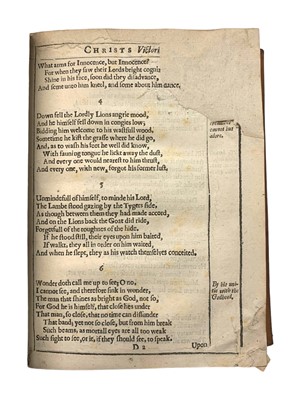 CHRISTS Victori
What arms for Innocence, but Innocence?
For when they saw their Lords bright cogniz
Shine in his face, soon did they disadvance,
And some unto him kneel, and some about him dance.
4
Down fell the Lordly Lions angrie mood,
And he himself fell down in congies low;
Bidding him welcome to his wastfull wood.
Sometime he kist the grasse where he did go,
And, as to wash his feet he well did know,
With fawning tongue he lickt away the dust,
And every one would nearest to him thrust,
And every one, with new, forgot his former lust.
5
Unmindefull of himself, to minde his Lord,
The Lambe stood gazing by the Tygers side,
As though between them they had made accord,
And on the Lions back the Goat did ride,
Forgetfull of the roughnes of the hide.
If he stood still, their eyes upon him baited,
If walkt, they all in order on him waited,
And when he slept, they as his watch themselves conceited.
6
Wonder doth call me up to see; O no,
I cannot see, and therefore sink in wonder,
The man that shines as bright as God, not so,
For God he is himself, that close lies under
That man, so close, that no time can dissunder
That band; yet not so close, but from him break
Such beams, as mortall eyes are all too weak
Such sight to see, or it, if they should see, to speak.
By his
tie with the
Godhead.
D 2
Upon